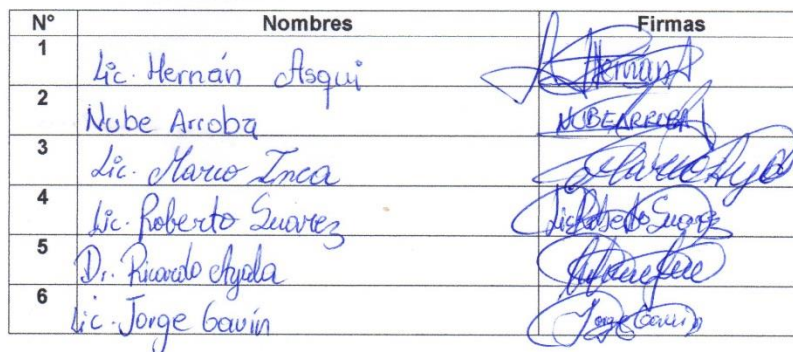 N° Nombres Firmas
1 Lic. Hernán Asqui Hernan A
2 Nube Arroba NUBE ARROBA
3 Lic. Marco Inca
4 Lic. Roberto Suarez Lic Roberto Suarez
5 Dr. Ricardo Ayala
6 Lic. Jorge Gavin Jorge Gavin